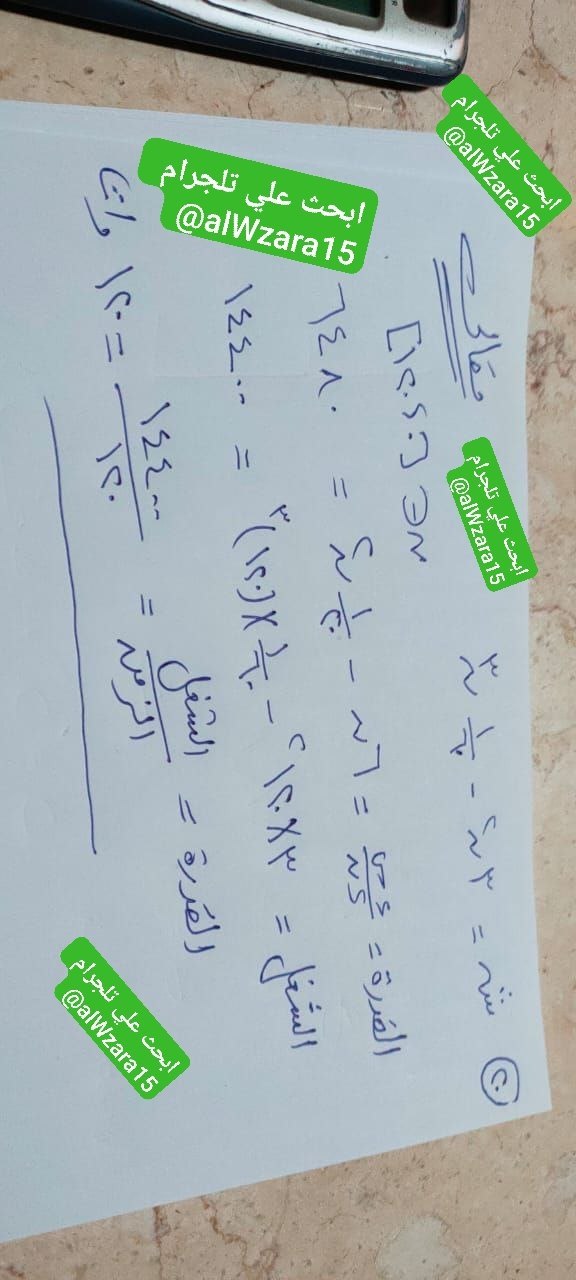 ابحث علي تلجرام
@alWzara15
ابحث علي تلجرام
@alWzara15
ابحث علي تلجرام
@alWzara15
ابحث علي تلجرام
@alWzara15
٢٠ ش = ٣ن٢ - ١/٦٠ ن٣ مقالى
ن ∈ [٠،١٢٠]
القدرة = ءش/ءن = ٦ن - ١/٢٠ ن٢ = ٦٤٨٠
الشغل = ٣×١٢٠٢ - ١/٦٠ ×(١٢٠)٣ = ١٤٤٠٠
القدرة = الشغل/الزمن = ١٤٤٠٠/١٢٠ = ١٢٠ وات